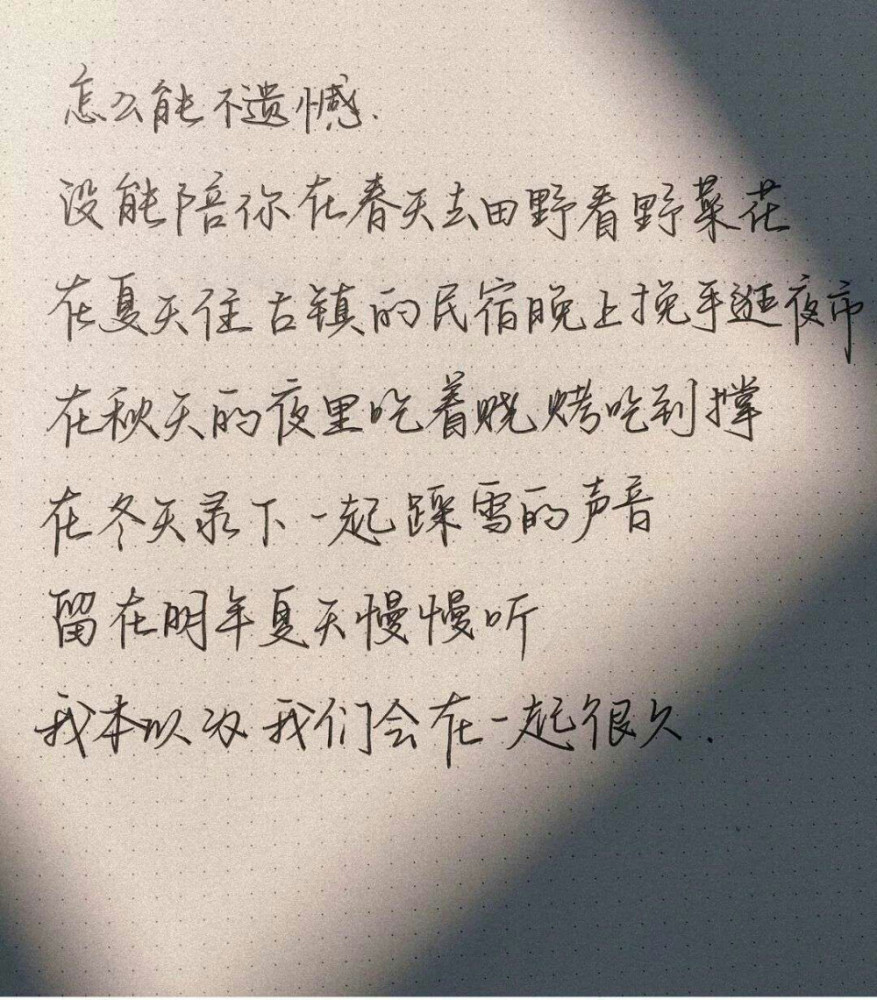 怎么能不遗憾.
没能陪你在春天去田野看野菜花
在夏天住古镇的民宿晚上挽手逛夜市
在秋天的夜里吃着烧烤吃到撑
在冬天录下一起踩雪的声音
留在明年夏天慢慢听
我本以为我们会在一起很久.